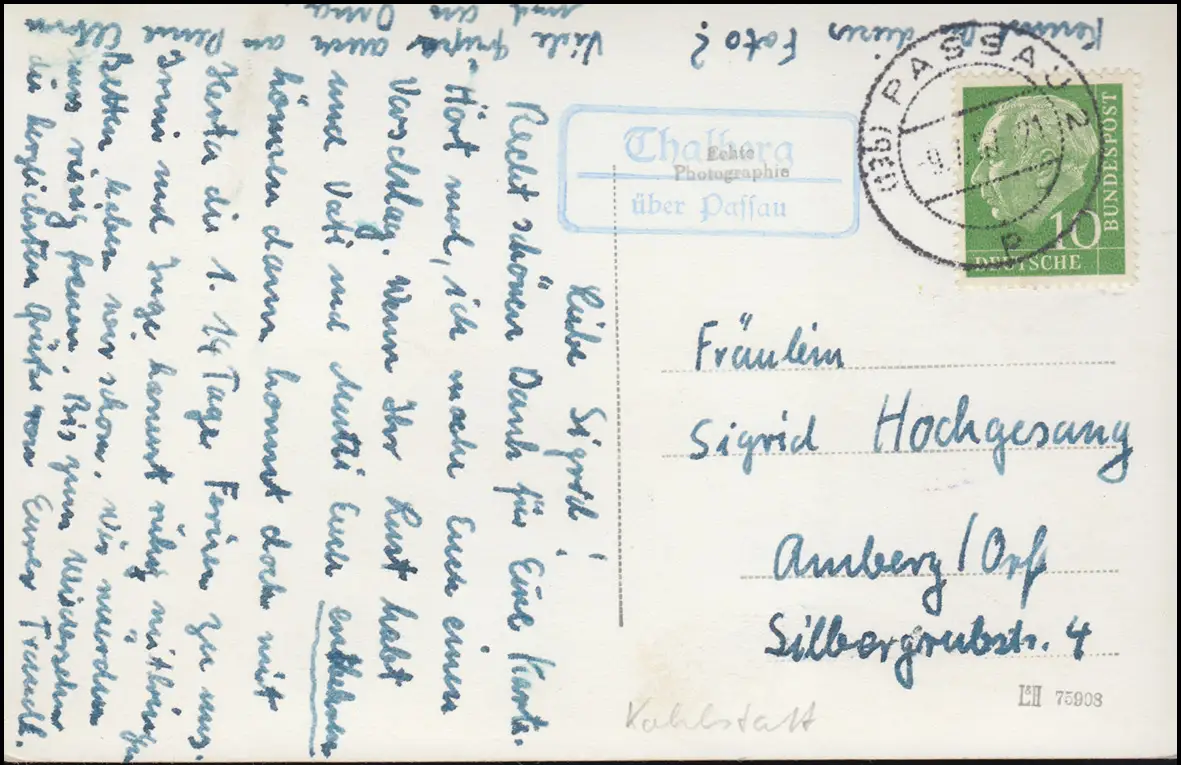 Liebe Sigrid!
Recht schönen Dank für Eure Karte.
Hört mal, ich mache Euch einen
Vorschlag. Wenn Ihr Lust habt
und Vati und Mutti Euch entbehren
können dann kommt doch mit
Herta die 1. 14 Tage Ferien zu uns.
Irmi und Inge kannst ruhig mitbringen
Betten haben wir schon. Wir würden
uns riesig freuen. Bis zum Wiedersehen
die herzlichsten Grüße von Eurer Traudl.
Viele Grüße auch an Deine Eltern
und an Oma.
Kennst Du dieses Foto?
Thalberg
über Passau
Echte
Photographie
PASSAU 2
DEUTSCHE
BUNDESPOST
10
Fräulein
Sigrid Hochgesang
Amberg/Opf
Silbergrubstr. 4
Kohlstatt
L&H 75908